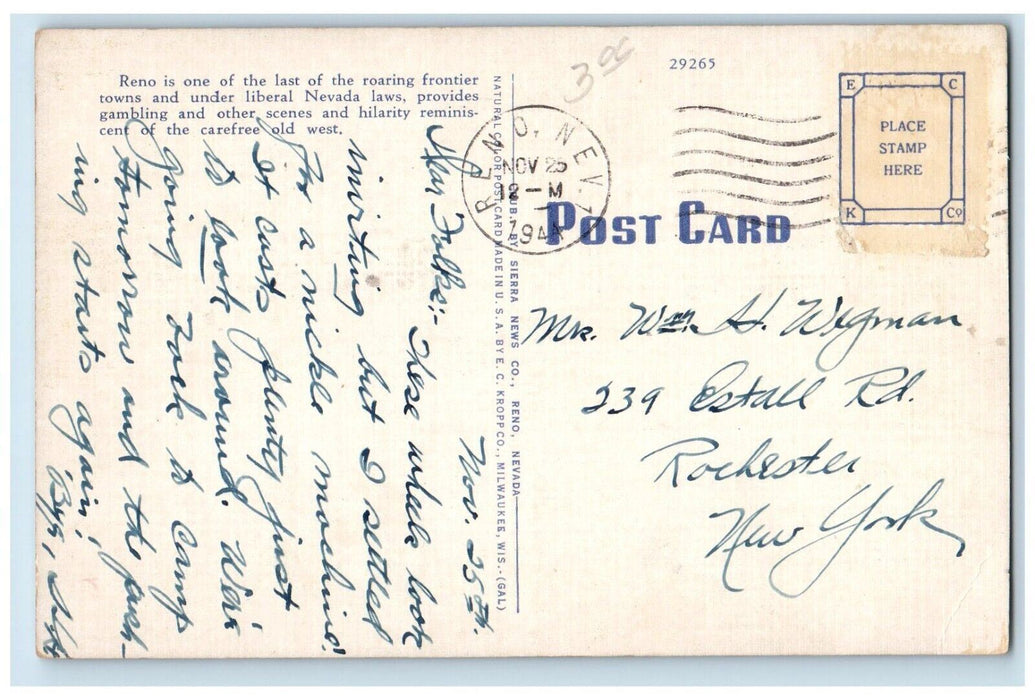 Reno is one of the last of the roaring frontier
towns and under liberal Nevada laws, provides
gambling and other scenes and hilarity reminis-
cent of the carefree old west.
3 00
29265
RENO, NEV.
NOV 25
12 - M
1944
E C
PLACE
STAMP
HERE
K Co
POST CARD
NATURAL COLOR POST CARD MADE IN U. S. A. BY E. C. KROPP CO., MILWAUKEE, WIS.-(GAL)
PUB. BY SIERRA NEWS CO., RENO, NEVADA
Nov. 25th.
Dear Folks:- These wheels look
inviting but I settled
for a nickle machine!
It costs plenty just
to look around. We're
going back to Camp
tomorrow and the fash-
ing starts again,
Bye,
Mr. Wm. H. Wegman
239 Estall Rd.
Rochester
New York